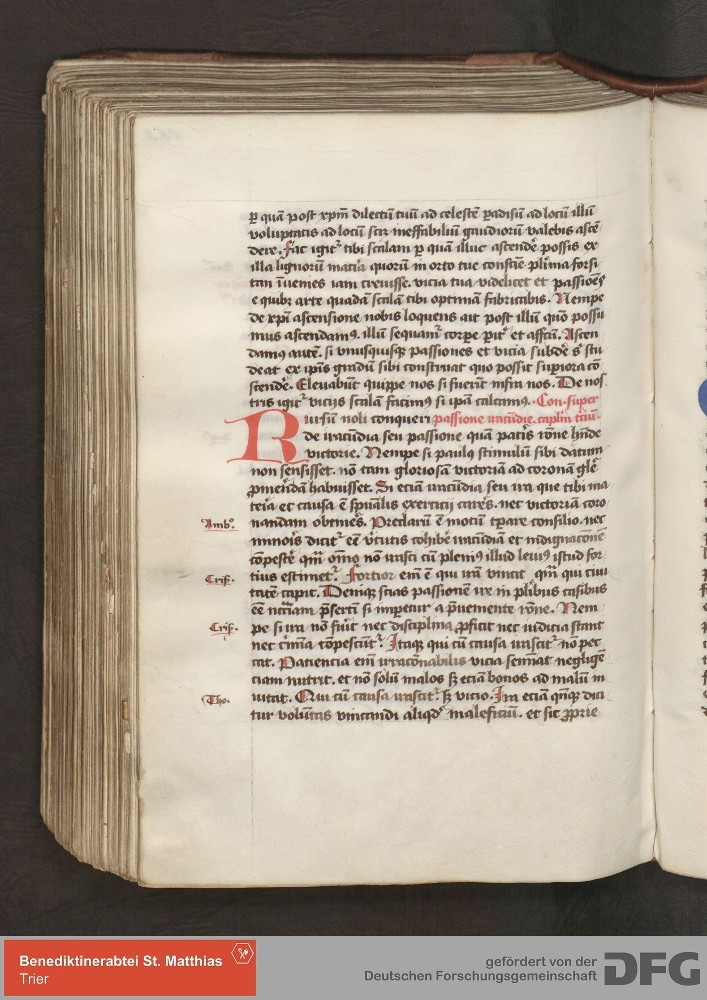 ꝑ quā post xpm̄ dilectū tuū ad celestē ꝑadisū ad locū illū
voluptatis ad locū scꝫ ineffabiliū gaudiorū valebis ascē
dere. Fac igitᷣ tibi scalam ꝑ quā illuc ascendē possis ex
illa lignorū matīa quorū in orto tue
tan iuuenes iam creuisse. vicia tua videlicet et passiones
e quibꝫ arte quadā scalā tibi optimā fabricabis. Nempe
de xp̄i ascensione nobis loquens ait post illū quo possu
mus ascendamꝰ. illū sequamᷣ corꝑe et affcū. Ascen
damꝰ autē. si vnusquisqꝫ passiones et vicia subdē sᷣ stu
deat ex ip̄is gradū sibi construat quo possit suꝑiora cō
scendē. Eleuabūt quippe nos si fuerīt infra nos. De nos
tris igitᷣ vicijs scalā facimꝰ si ipā calcamꝰ. Con. super
Rursū noli conqueri passione iracūdie. caplm̄ tciū.
de iracūdia seu passione quā patis rōne hn̄de
victorie. Nempe si paulꝰ stimulū sibi datum
non sensisset. nō tam gloriosā victoriā ad coronā glē
ꝓmerēdā habuisset. Si eciā iracūdia seu ira que tibi ma
teia et causa ē spūalis exercicij cares. nec victoriā coro
Amb.
nandam obtines. Preclarū ē motū tꝑare consilio. nec
minoīs dicitᷣ eē vᷣtutis cohibē iracūdiā et indignaconē
cōpescē qm̄ om̄o nō irasci cū plenius illud leuius istud for
Cris.
tius estimetᷣ. Fortior em̄ ē qui irā vincit qm̄ qui ciui
tatē capit. Deniqꝫ scias passionem ire in plibꝰ casibus
eē nc̄riam p̄sertī si imꝑetur a p̄ueniente rōne. Nem
Cris.
pe si ira nō fūit nec disciplina ꝓficit nec iudicia stant
nec cīmīa cōpescūtᷣ. Itaqꝫ qui cū causa irascitᷣ nō pec
cat. Paciencia em̄ irraconabilis vicia semīat negligē
ciam nutrit. et nō solū malos sꝫ eciā bonos ad malū in
Tho.
uitat. Qui cū causa irascitᷣ sꝫ vicio. Ira eciā qn̄qꝫ dici
tur volūtas vincandi aliqd̄ maleficiū. et sic ꝓprie
Benediktinerabtei St. Matthias
Trier
gefördert von der
Deutschen Forschungsgemeinschaft
DFG